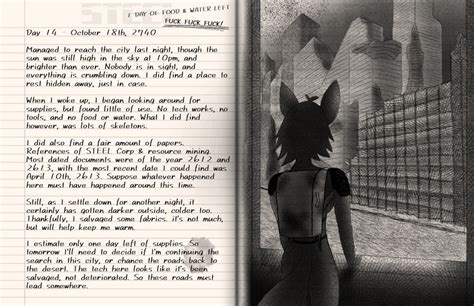 STE
1 DAY OF FOOD & WATER LEFT
FUCK FUCK FUCK!
Day 14 - October 18th, 2740
Managed to reach the city last night, though the
sun was still high in the sky at 10pm, and
brighter than ever. Nobody is in sight, and
everything is crumbling down. I did find a place to
rest hidden away, just in case.
When I woke up, I began looking around for
supplies, but found little of use. No tech works, no
tools, and no food or water. What I did find
however, was lots of skeletons.
I did also find a fair amount of papers.
References of STEEL Corp & resource mining.
Most dated documents were of the year 2612 and
2613, with the most recent date I could find was
April 10th, 2613. Suppose whatever happened
here must have happened around this time.
Still, as I settle down for another night, it
certainly has gotten darker outside, colder too.
Thankfully, I salvaged some fabrics. it's not much,
but will help keep me warm.
I estimate only one day left of supplies. So
tomorrow I'll need to decide if I'm continuing the
search in this city, or chance the roads back to
the desert. The tech here looks like it's been
salvaged, not deteriorated. So these roads must
lead somewhere.